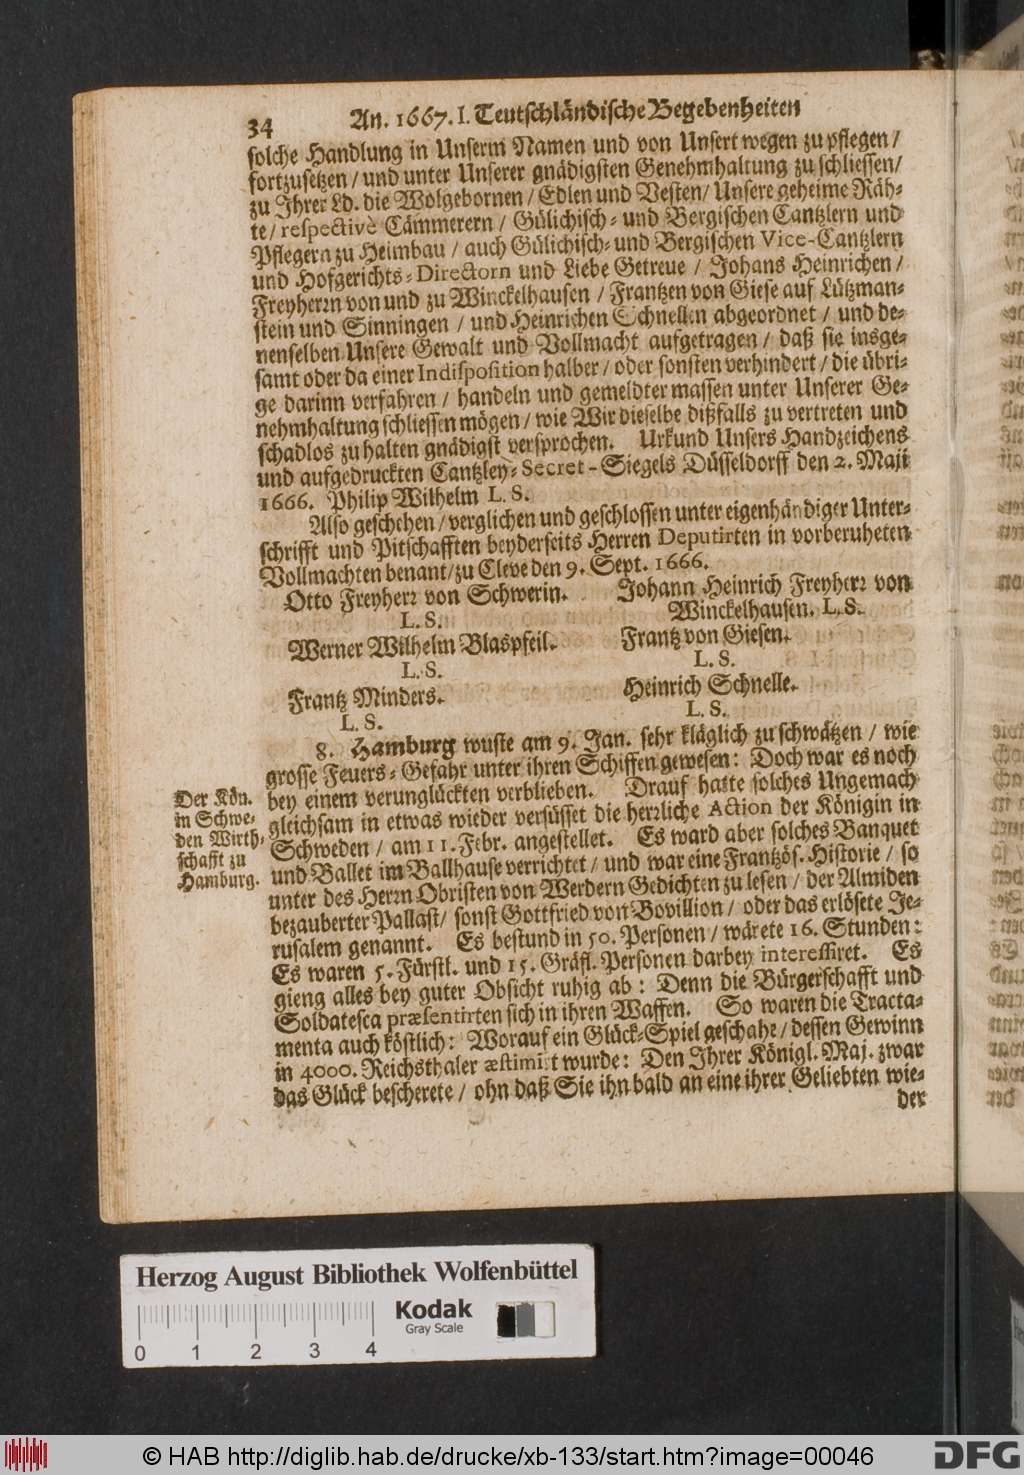 34 An. 1667. I. Teutschländische Begebenheiten
solche Handlung in Unserm Namen und von Unsert wegen zu pflegen /
fortzusetzen / und unter Unserer gnädigsten Genehmhaltung zu schliessen /
zu Ihrer Ld. die Wolgebornen / Edlen und Vesten / Unsere geheime Räh-
te / respectivè Cämmerern / Gülichisch- und Bergischen Cantzlern und
Pflegern zu Heimbau / auch Gülichisch- und Bergischen Vice-Cantzlern
und Hofgerichts-Directorn und Liebe Getreue / Johans Heinrichen /
Freyherrn von und zu Winckelhausen / Frantzen von Giese auf Lützman-
stein und Sinningen / und Heinrichen Schnellen abgeordnet / und de-
nenselben Unsere Gewalt und Vollmacht aufgetragen / daß sie insge-
samt oder da einer Indisposition halber / oder sonsten verhindert / die übri-
ge darinn verfahren / handeln und gemeldter massen unter Unserer Ge-
nehmhaltung schliessen mögen / wie Wir dieselbe dißfalls zu vertreten und
schadlos zu halten gnädigst versprochen. Urkund Unsers Handzeichens
und aufgedruckten Cantzley-Secret-Siegels Düsseldorff den 2. Maji
1666. Philip Wilhelm L. S.
Also geschehen / verglichen und geschlossen unter eigenhändiger Unter-
schrifft und Pitschafften beyderseits Herren Deputirten in vorberuheten
Vollmachten benant / zu Cleve den 9. Sept. 1666.
Otto Freyherr von Schwerin. Johann Heinrich Freyherr von
L. S. Winckelhausen. L. S.
Werner Wilhelm Blaspfeil. Frantz von Giesen.
L. S. L. S.
Frantz Minders. Heinrich Schnelle.
L. S. L. S.
8. Hamburg wuste am 9. Jan. sehr kläglich zu schwätzen / wie
grosse Feuers-Gefahr unter ihren Schiffen gewesen: Doch war es noch
bey einem verunglückten verblieben. Drauf hatte solches Ungemach
gleichsam in etwas wieder versüsset die herrliche Action der Königin in
Schweden / am 11. Febr. angestellet. Es ward aber solches Banquet
und Ballet im Ballhause verrichtet / und war eine Frantzös. Historie / so
unter des Herrn Obristen von Werdern Gedichten zu lesen / der Almiden
bezauberter Pallast / sonst Gottfried von Bovillion / oder das erlösete Je-
rusalem genannt. Es bestund in 50. Personen / wärete 16. Stunden:
Es waren 5. Fürstl. und 15. Gräfl. Personen darbey interessiret. Es
gieng alles bey guter Obsicht ruhig ab: Denn die Bürgerschafft und
Soldatesca præsentirten sich in ihren Waffen. So waren die Tracta-
menta auch köstlich: Worauf ein Glück-Spiel geschahe / dessen Gewinn
in 4000. Reichsthaler æstimirt wurde: Den Ihrer Königl. Maj. zwar
das Glück bescherete / ohn daß Sie ihn bald an eine ihrer Geliebten wie-
der
Der Kön.
in Schwe-
den Wirth-
schafft zu
Hamburg.
Herzog August Bibliothek Wolfenbüttel
Kodak
Gray Scale
0 1 2 3 4
© HAB http://diglib.hab.de/drucke/xb-133/start.htm?image=00046
DFG